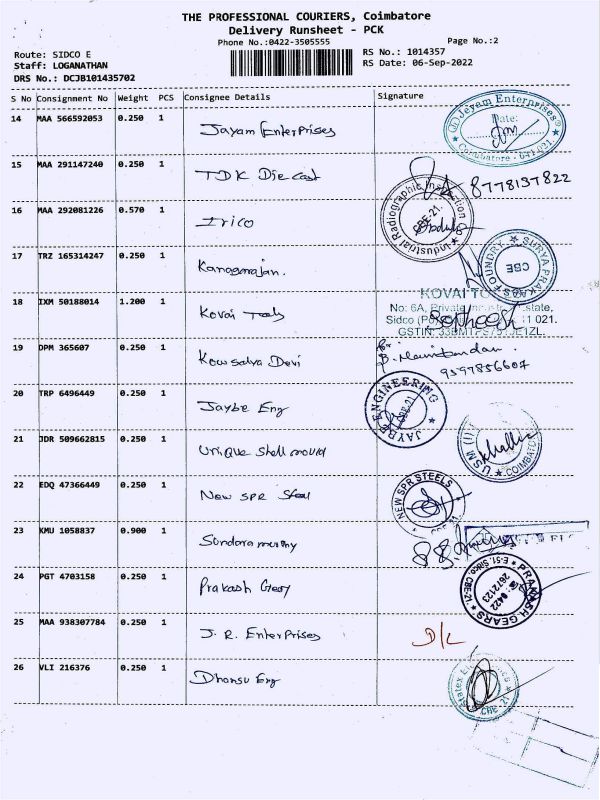 THE PROFESSIONAL COURIERS, Coimbatore
Delivery Runsheet - PCK
Phone No.:0422-3505555 Page No.:2
Route: SIDCO E RS No.: 1014357
Staff: LOGANATHAN RS Date: 06-Sep-2022
DRS No.: DCJB101435702
S No Consignment No Weight PCS Consignee Details Signature
14 MAA 566592053 0.250 1 Jayam Enterprises
Jeyam Enterprises
Date:
Coimbatore - 641 021
15 MAA 291147240 0.250 1 TDK Die cast 8778137822
16 MAA 292081226 0.570 1 Irico
Industrial Radiographic Inspection
CBE-21.
17 TRZ 165314247 0.250 1
SURYA PRAKASH FOUNDRY
CBE
18 IXM 50188014 1.200 1 Kovai Tools
KOVAI TO
No: 6A, Private Industrial Estate,
Sidco (Po)
GSTIN: 33BM
19 DPM 365607 0.250 1 Kowsalya Devi
9597856607
20 TRP 6496449 0.250 1 Jaybe Eng
JAYBE ENGINEERING
CBE-21
21 JDR 509662815 0.250 1 Unique Shell mould
USM
COIMBATORE
22 EDQ 47366449 0.250 1 New SPR Steel
NEW SPR STEELS
23 KMU 1058837 0.900 1
24 PGT 4703158 0.250 1 Prakash Gear
PRAKASH GEARS
E-51, SIDCO, CBE-21
0422
2672123
25 MAA 938307784 0.250 1 J. R. Enterprises D/L
26 VLI 216376 0.250 1 Dhansu Eng
CBE-21